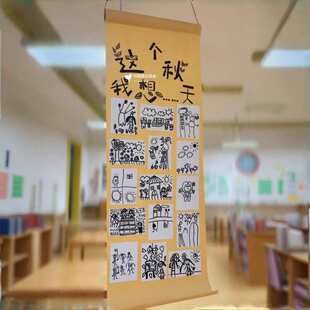 这个秋天
我想……